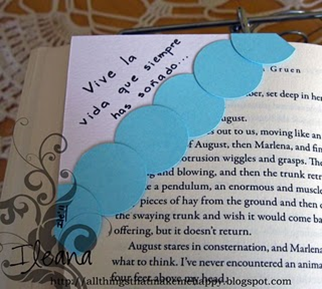 Vive la
vida que siempre
has soñado...
Gruen
, set deep in her
August.
out to us, moving like an
August, then Marlena, and fin
otrusion wiggles and grasps. The
and blowing, and then the trunk retr
a pendulum, an enormous and muscle
pieces of hay from the ground and then
the swaying trunk and wish it would come ba
offering, but it doesn't return.
August stares in consternation, and Marlena
what to think. I've never encountered an anima
four feet above my head.
Ileana
http://allthingsthatmakemehappy.blogspot.com